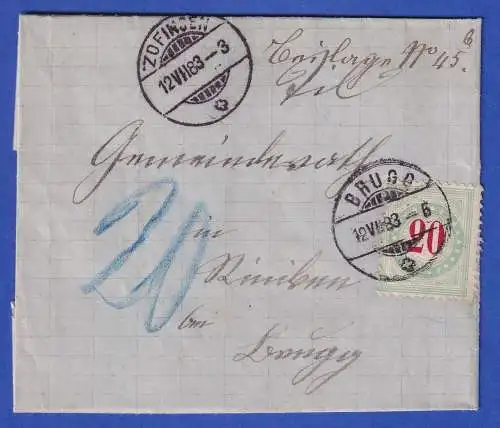 ZOFINGEN
12 VII 83 – 3
Beilage No 45.
Gemeinderath
BRUGG
12 VII 83 – 6
20
20
in
Riniken
bei
Brugg